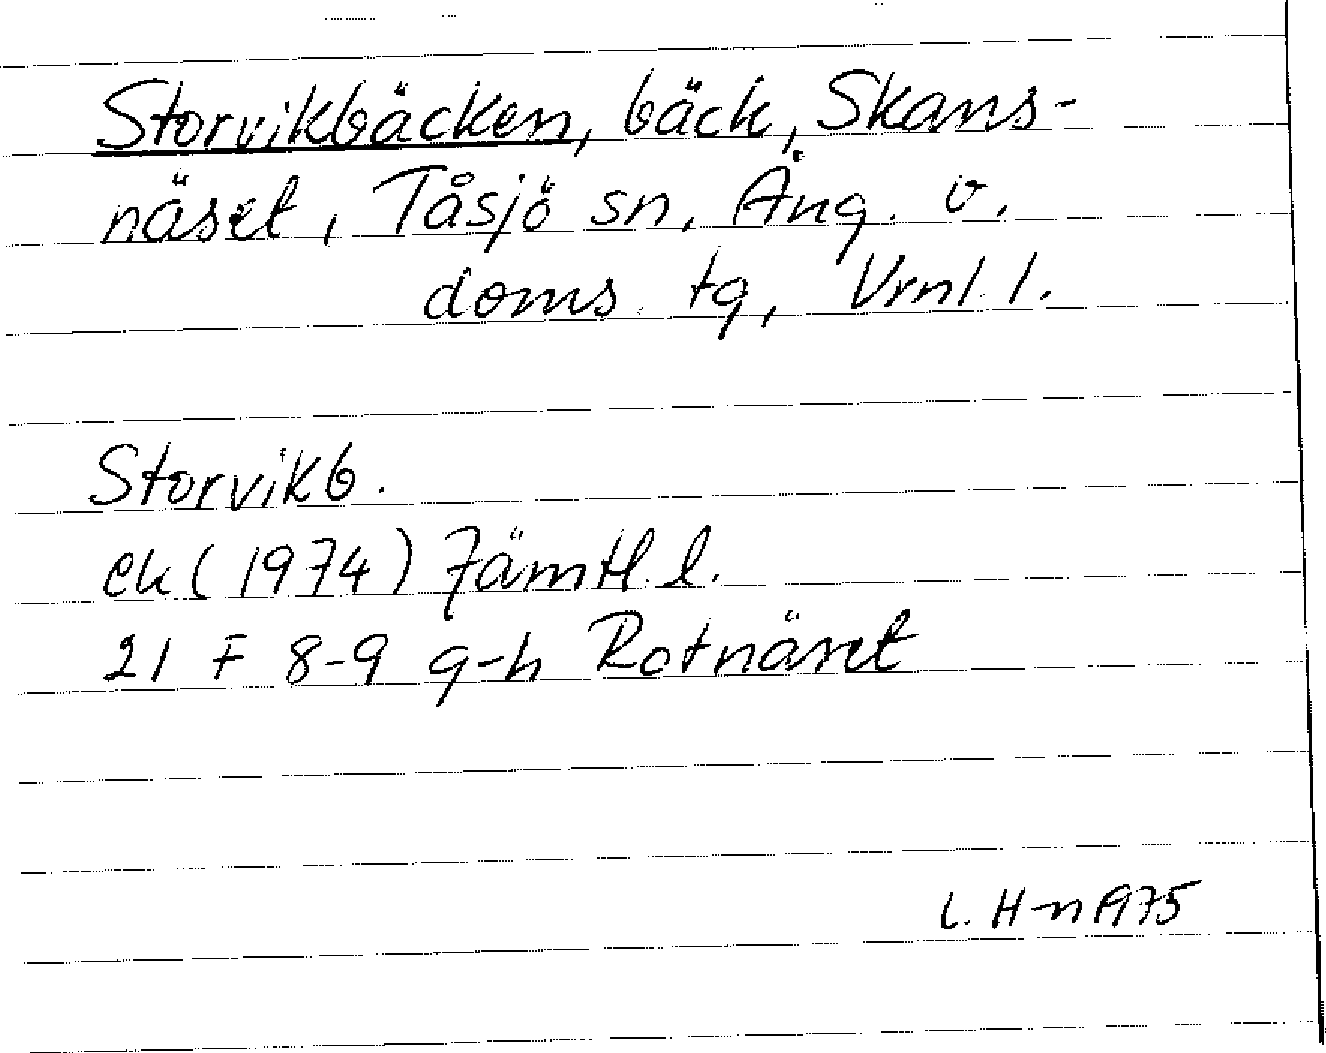 Storvikbäcken, bäck, Skans-
näset, Tåsjö sn, Äng. v.
doms. tg, Vrnl. l.
Storvikb.
ek (1974) Jämtl. l.
21 F 8-9 g-h Rotnäset
L. H-n 1975